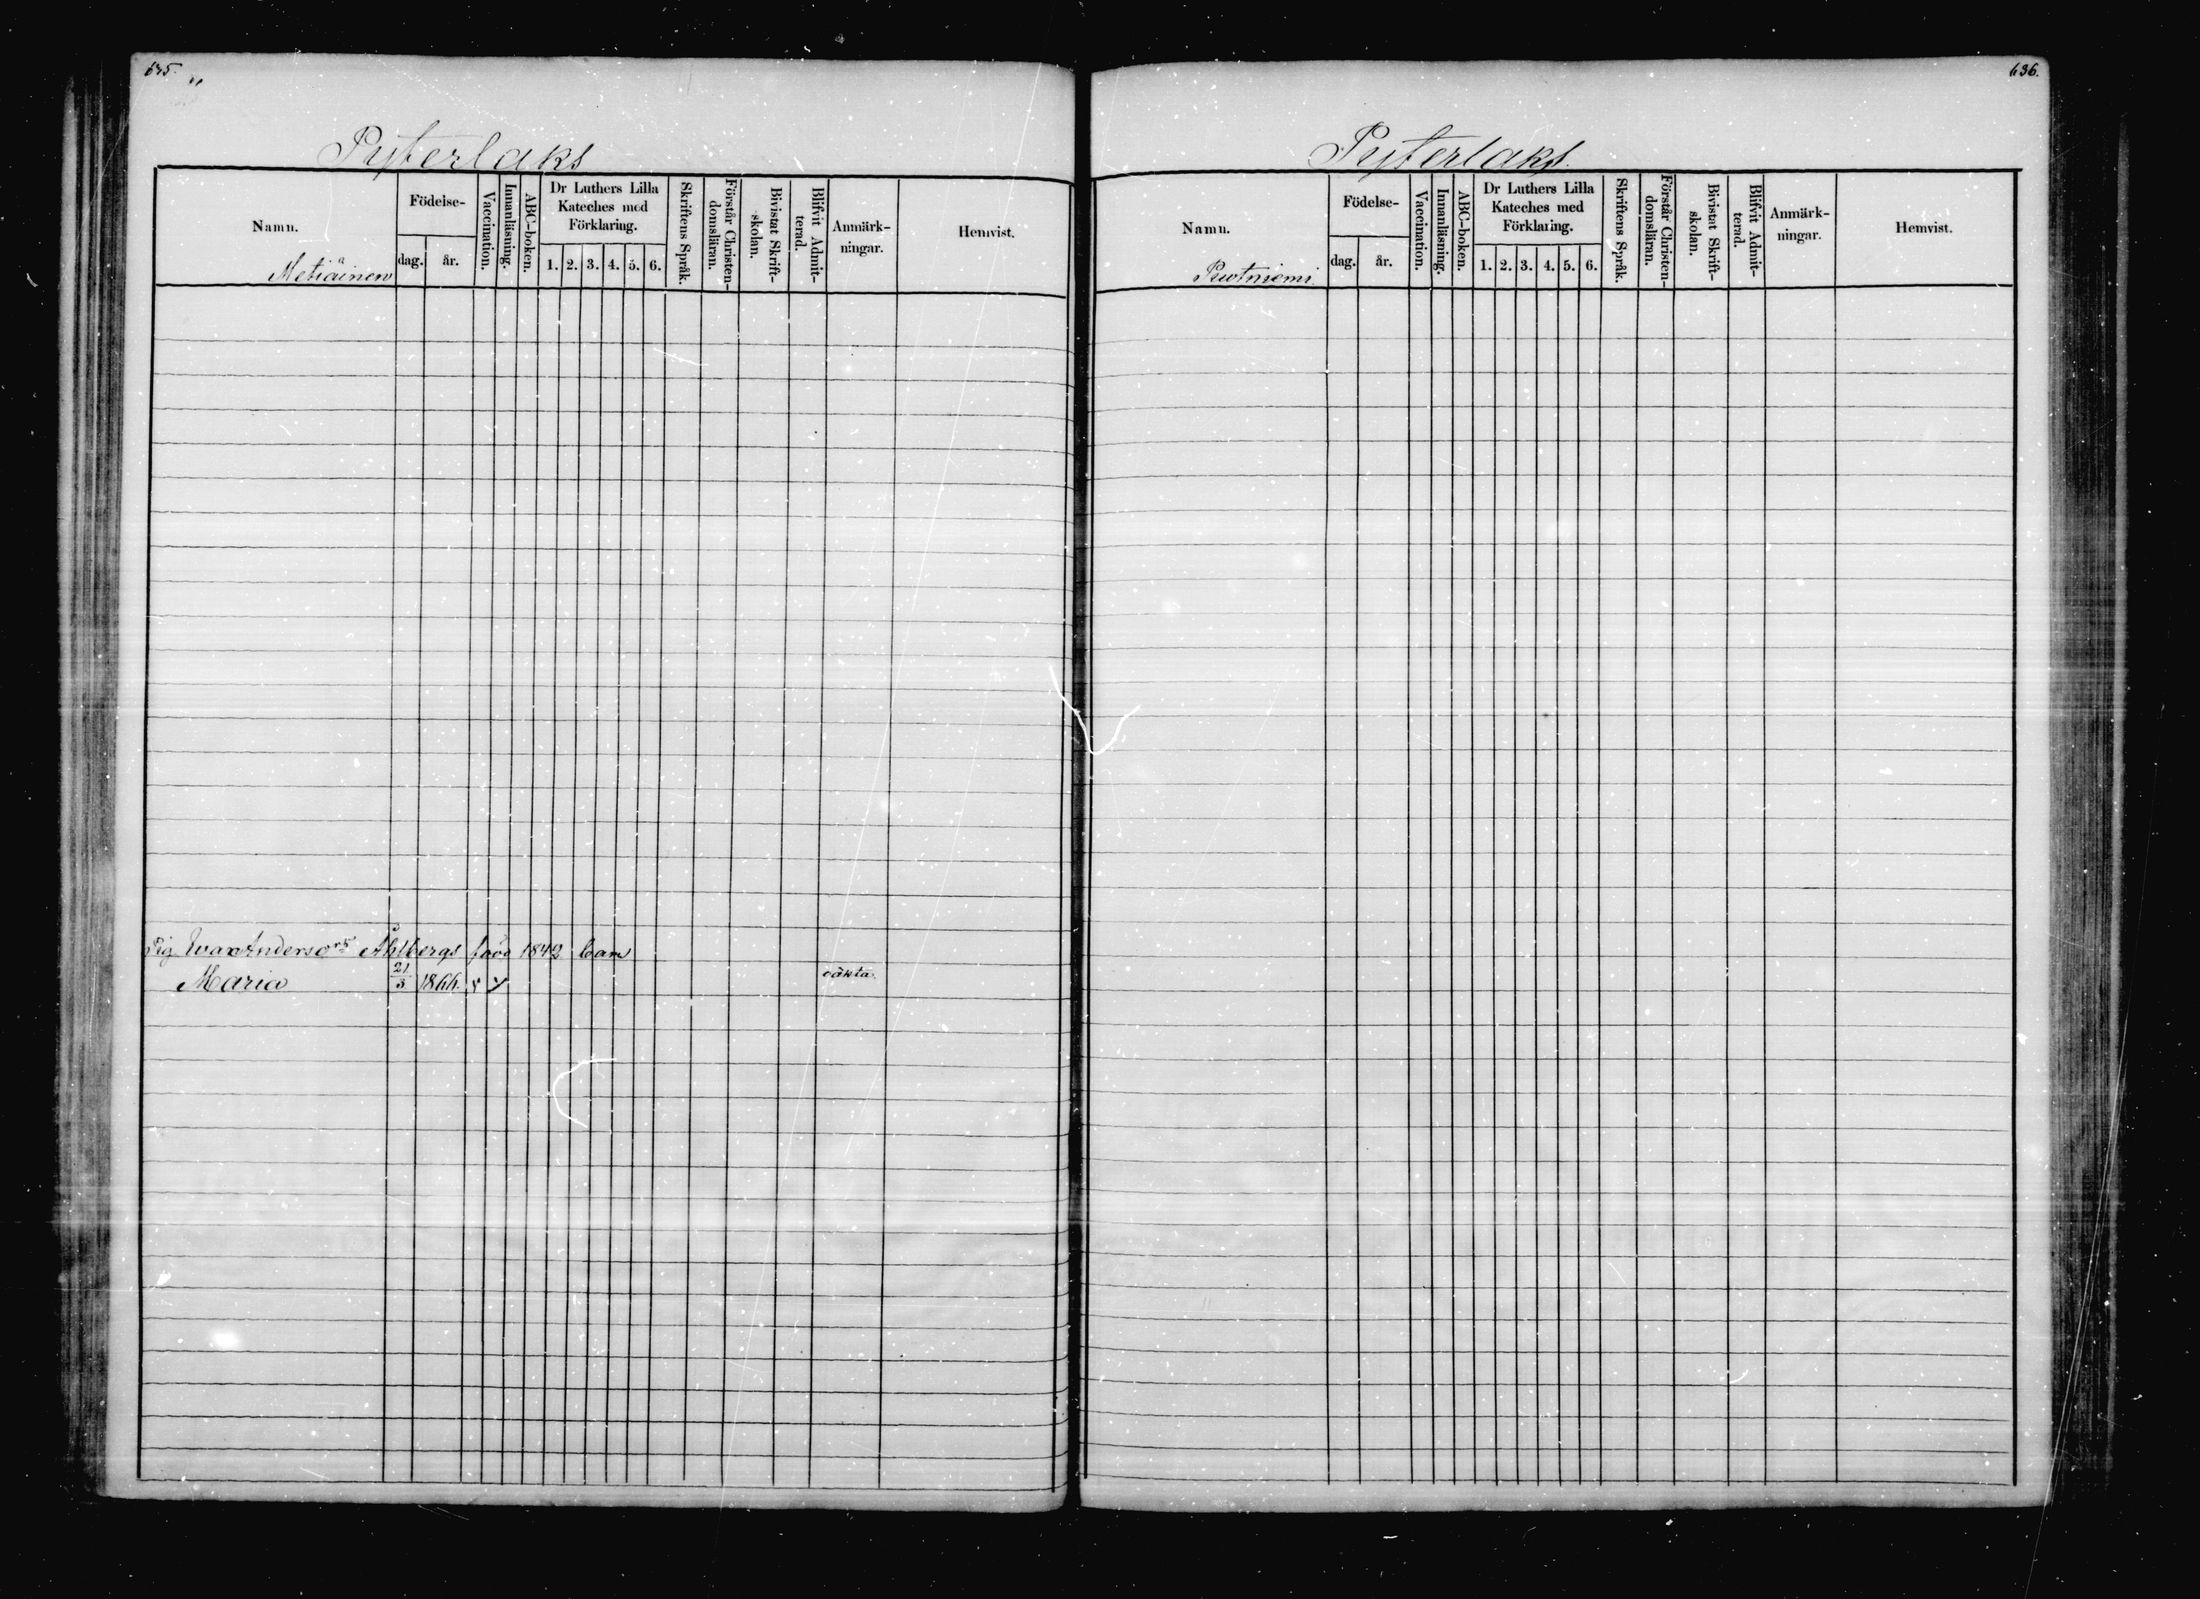 635.
Pyterlaks
Namn.
Metiäinen
Födelse-
dag.
år.
Vaccination.
Innanläsning.
ABC-boken.
Dr Luthers Lilla
Kateches med
Förklaring.
1. 2. 3. 4. 5. 6.
Skriftens Språk.
Förstår Christen-
domsläran.
Bivistat Skrift-
skolan.
Blifvit Admit-
terad.
Anmärk-
ningar.
Hemvist.
Pig. Eva Anders Ahlbergs född 1842 barn
Maria 21/3 1866.
oäkta.
636.
Pyterlaks.
Namn.
Födelse-
dag.
år.
Vaccination.
Innanläsning.
ABC-boken.
Dr Luthers Lilla
Kateches med
Förklaring.
1. 2. 3. 4. 5. 6.
Skriftens Språk.
Förstår Christen-
domsläran.
Bivistat Skrift-
skolan.
Blifvit Admit-
terad.
Anmärk-
ningar.
Hemvist.